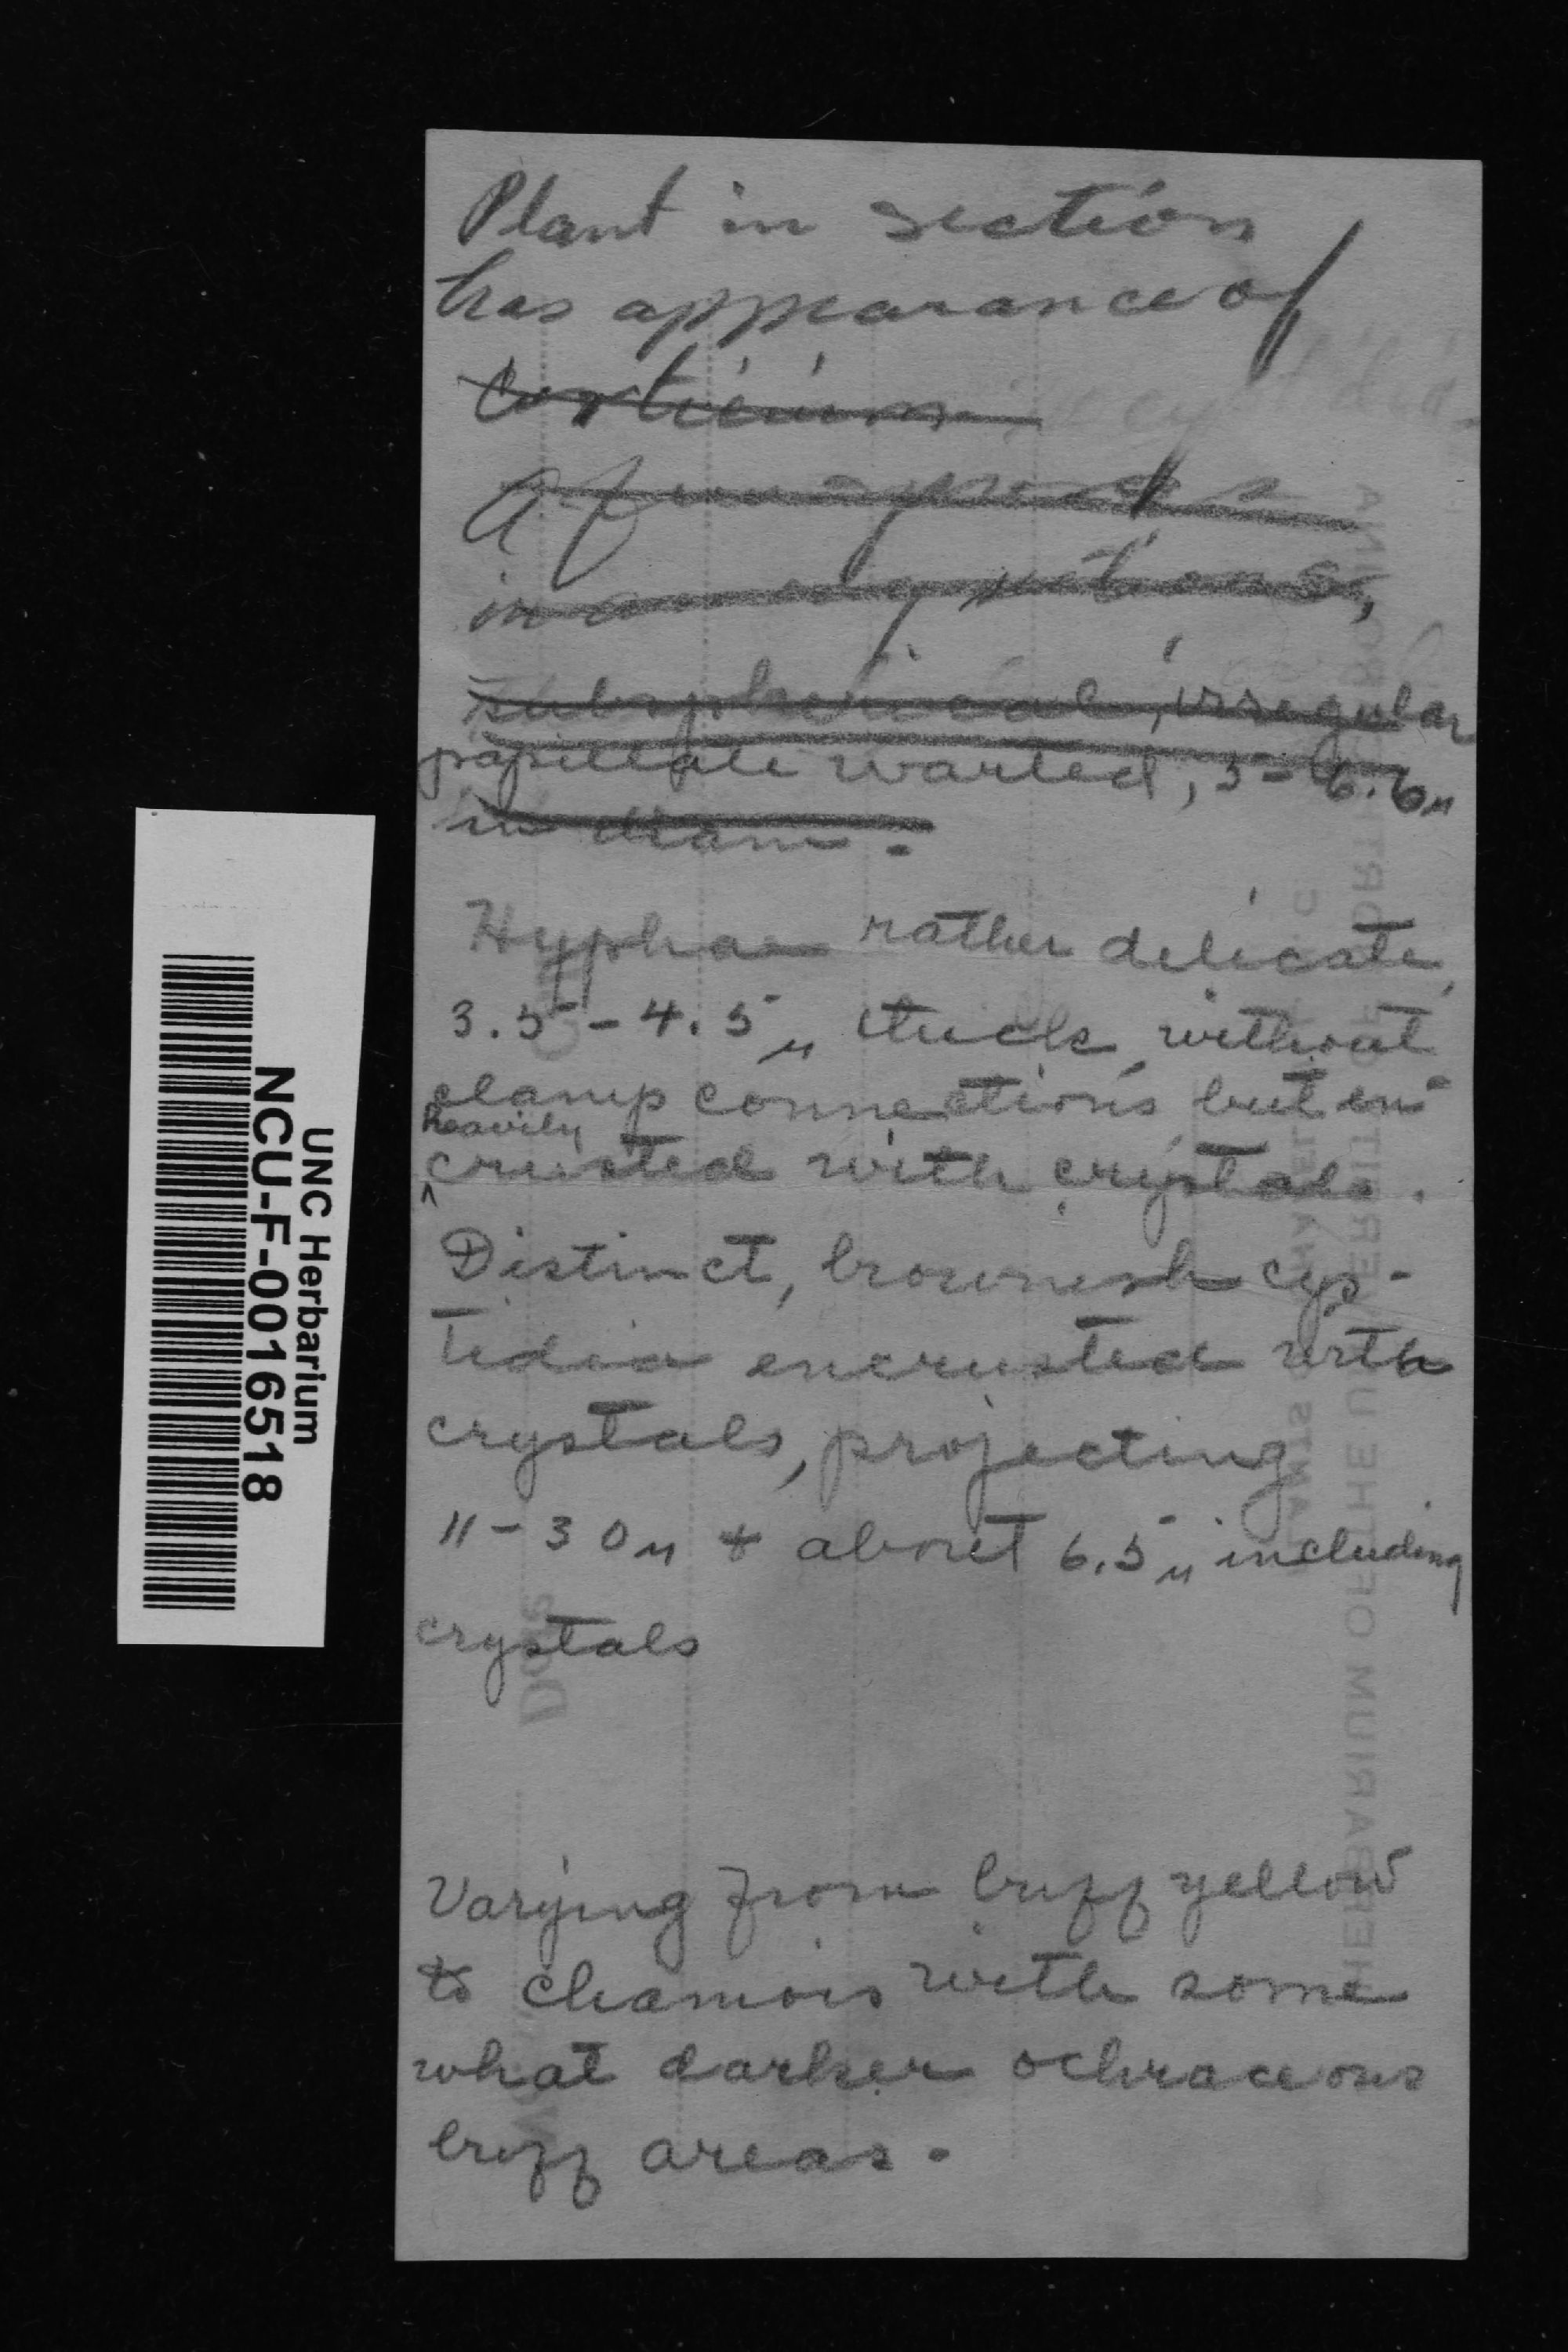 Plant in section
has appearance of
Corticium
A few spores
in
subspherical, irregular
papillate warted, 5-6.6µ
in diam.
Hyphae rather delicate,
3.5-4.5µ thick, without
clamp connections but en-
heavily
^crusted with crystals.
Distinct, brownish cys-
tidia encrusted with
crystals, projecting
11-30µ & about 6.5µ including
crystals
Varying from buff yellow
to chamois with some
what darker ochraceous
buff areas.
UNC Herbarium
NCU-F-0016518
HERBARIUM OF THE UNIVERSITY OF NORTH CAROLINA